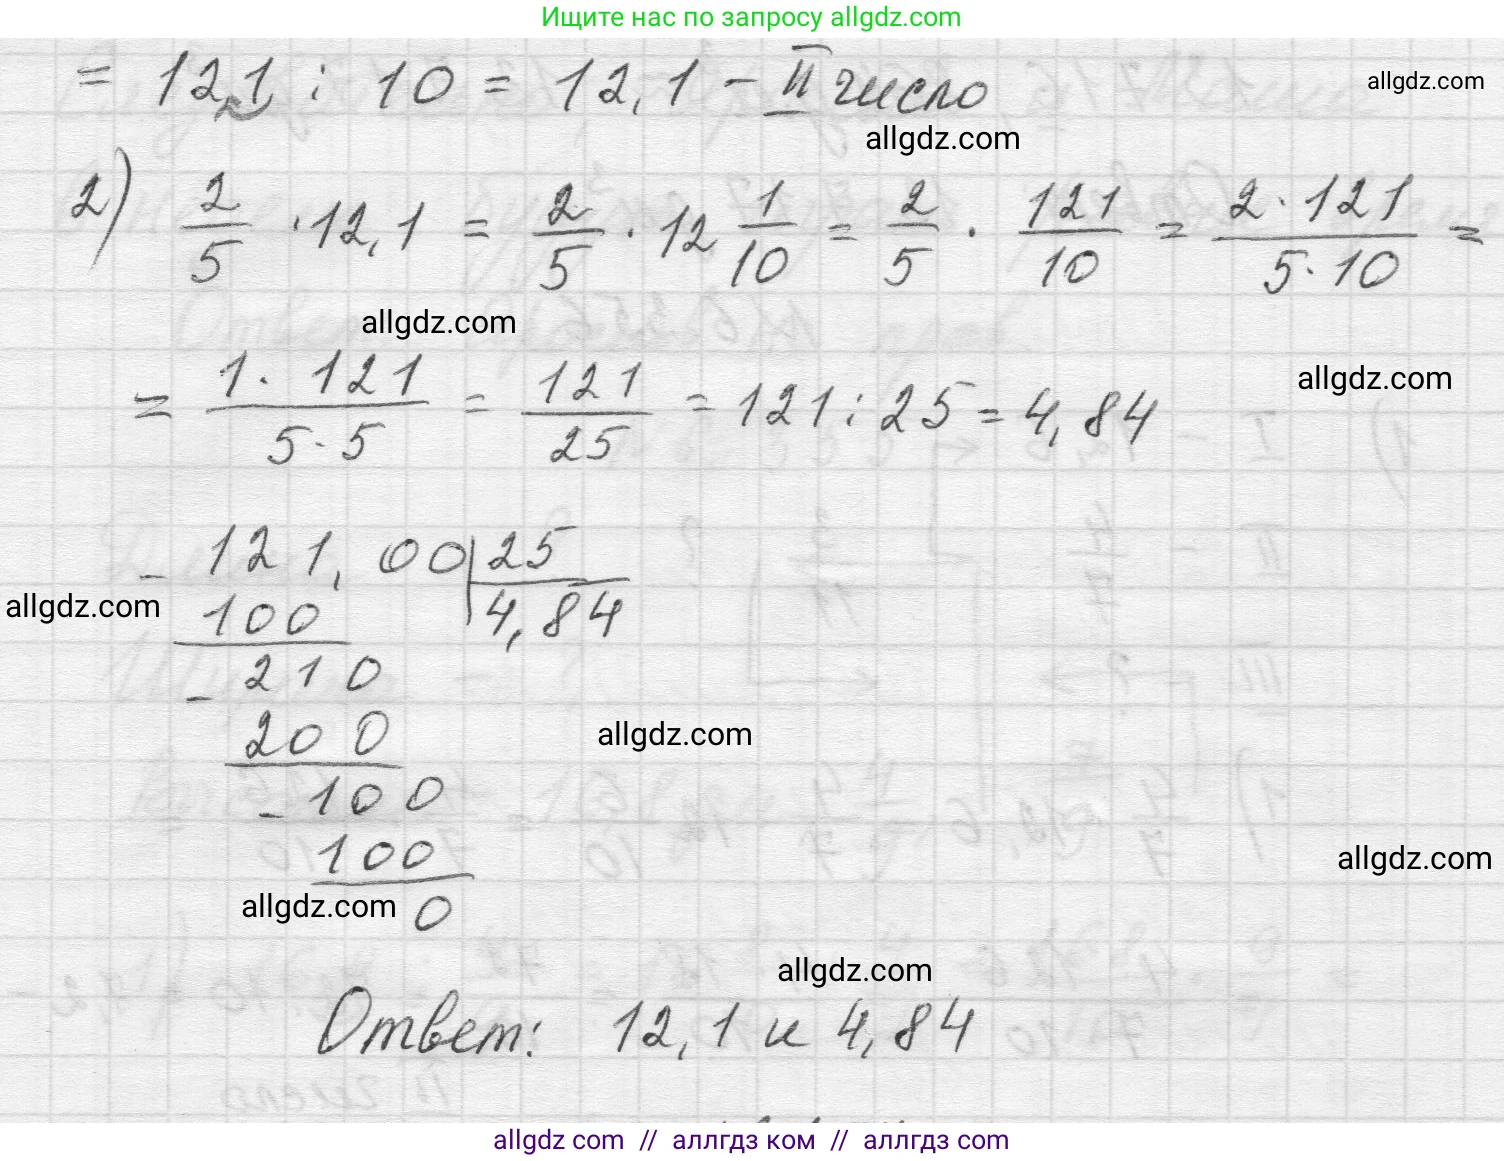 Ищите нас по запросу allgdz.com
= 12,1 : 10 = 12,1 - II число
allgdz.com
allgdz.com
2) 2/5 · 12,1 = 2/5 · 12 1/10 = 2/5 · 121/10 = 2 · 121/5 · 10 =
allgdz.com
= 1 · 121/5 · 5 = 121/25 = 121 : 25 = 4,84
allgdz.com
- 121,00 | 25
allgdz.com 100 4,84
- 210
200
allgdz.com
- 100
100
allgdz.com
allgdz.com 0
allgdz.com
Ответ: 12,1 и 4,84
allgdz com // аллгдз ком // аллгдз com